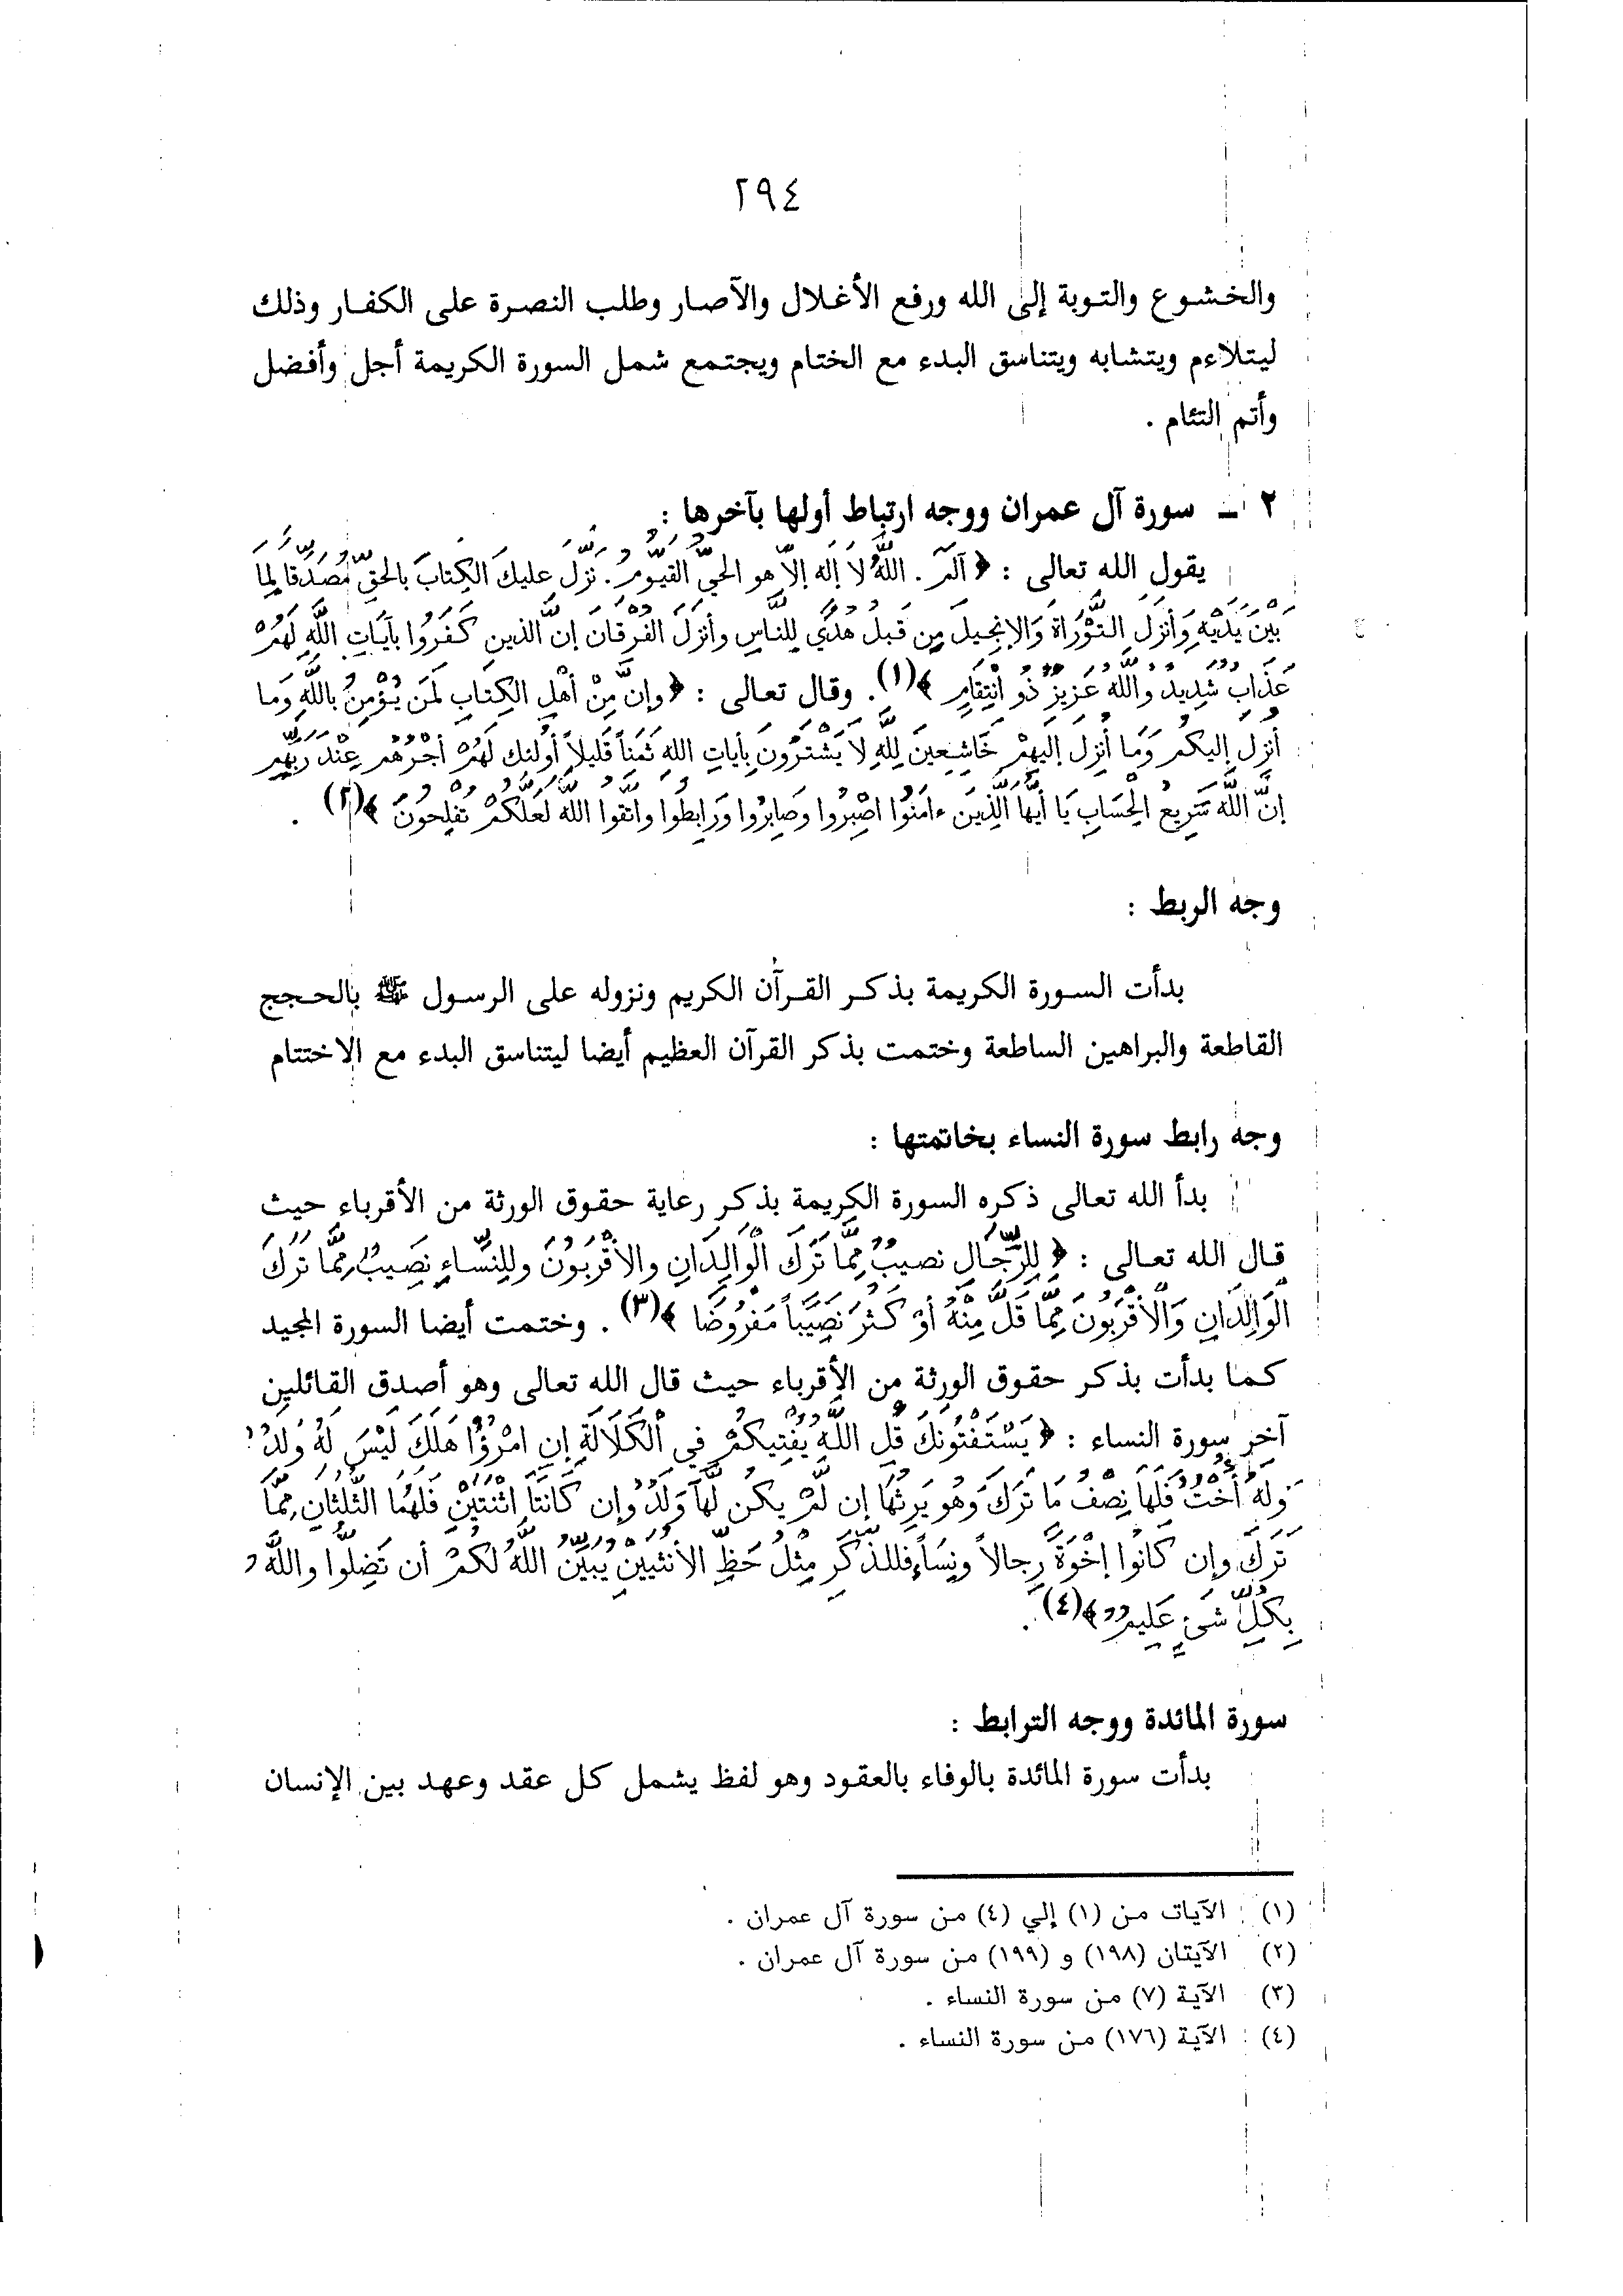 ٢٩٤
والخشوع والتوبة إلى الله ورفع الأغلال والآصار وطلب النصرة على الكفار وذلك
ليتلاءم ويتشابه ويتناسق البدء مع الختام ويجتمع شمل السورة الكريمة أجل وأفضل
وأتم إلتئام .
٢ ـ سورة آل عمران ووجه ارتباط أولها بآخرها :
يقول الله تعالى : ﴿ الَمَ . اللَّهُ لاَ إَلَه إلاَّ هو الحيُّ القَيُّومُ . نَزَّلَ عليكَ الكِتابَ بالحَقِّ مُصَدِّقا لِمَا
بَيْنَ يَدَيْهِ وَأنزَلَ التَّوْرَاةَ وَالإنجِيلَ مِن قَبلُ هُدًى لِلنَّاسِ وأنزَلَ الفُرْقَانَ إنَّ الَّذينِ كَفَرُوا بآيَاتِ اللَّهِ لَهُمْ
عَذَابٌ شَدِيدٌ واللَّهُ عَزِيزٌ ذُو انْتِقَامٍ ﴾(١). وقال تعالى : ﴿ وإنَّ مِنْ أهْلِ الكِتَابِ لَمَن يُؤْمِنُ باللَّهِ وَمَا
أُنزِلَ إليكُم وَمَا أُنزِلَ إليهِمْ خَاشِعِينَ لِلَّهِ لاَ يَشْتَرُونَ بِأياتِ اللهِ ثَمَناً قَلِيلاً أولئك لَهُمْ أجْرُهُم عِنْدَ رَبِّهِم
إنَّ اللَّهَ سَرِيعُ الْحِسَابِ يَا أيُّها الَّذِينَ ءامَنُوا اصْبِرُوا وَصَابِرُوا وَرَابِطُوا واتَّقُوا اللَّهَ لَعَلَّكُمْ تُفْلِحُونَ ﴾(٢) .
وجه الربط :
بدأت السورة الكريمة بذكر القرآن الكريم ونزوله على الرسول ﷺ بالحجج
القاطعة والبراهين الساطعة وختمت بذكر القرآن العظيم أيضا ليتناسق البدء مع الاختتام
وجه رابط سورة النساء بخاتمتها :
بدأ الله تعالى ذكره السورة الكريمة بذكر رعاية حقوق الورثة من الأقرباء حيث
قال الله تعالى : ﴿ لِلرِّجَالِ نصيبٌ مِمَّا تَرَكَ الْوَالِدَانِ والأقْرَبُونَ وللِنِّسَاءِ نَصِيبٌ مِمَّا تَرَكَ
الْوَالِدَانِ وَالْأَقْرَبُونَ مِمَّا قَلَّ مِنْهُ أوْ كَثُرَ نَصِيباً مَفْرُوضَا ﴾(٣) . وختمت أيضا السورة المجيد
كما بدأت بذكر حقوق الورثة من الأقرباء حيث قال الله تعالى وهو أصدق القائلين
آخر سورة النساء : ﴿ يَسْتَفْتُونَكَ قُلِ اللَّهُ يُفْتِيكُمْ فِي الْكَلَالَةِ إنِ امْرُؤٌا هَلَكَ لَيْسَ لَهُ وَلَدٌ
وَلَهُ أُخْتٌ فَلَهَا نِصْفُ مَا تَرَكَ وَهُو يَرِثُهَا إن لَّمْ يكُن لَّها وَلَدٌ وإن كَانَتَا اثْنَتَيْنِ فَلَهُمَا الثُّلُثَانِ مِمَّا
تَرَكَ وإن كَانُوا إخْوَةً رِجالاً ونِسَاءً فللذَّكَرِ مِثْلُ حَظِّ الأنثيينْ يُبَيِّنُ اللَّهُ لكُمْ أن تَضِلُّوا واللَّهُ
بِكلِّ شَيءٍ عَلِيمٌ ﴾(٤) .
سورة المائدة ووجه الترابط :
بدأت سورة المائدة بالوفاء بالعقود وهو لفظ يشمل كل عقد وعهد بين الإنسان
(١) الآيات من (١) إلي (٤) من سورة آل عمران .
(٢) الآيتان (١٩٨) و (١٩٩) من سورة آل عمران .
(٣) الآية (٧) من سورة النساء .
(٤) الآية (١٧٦) من سورة النساء .